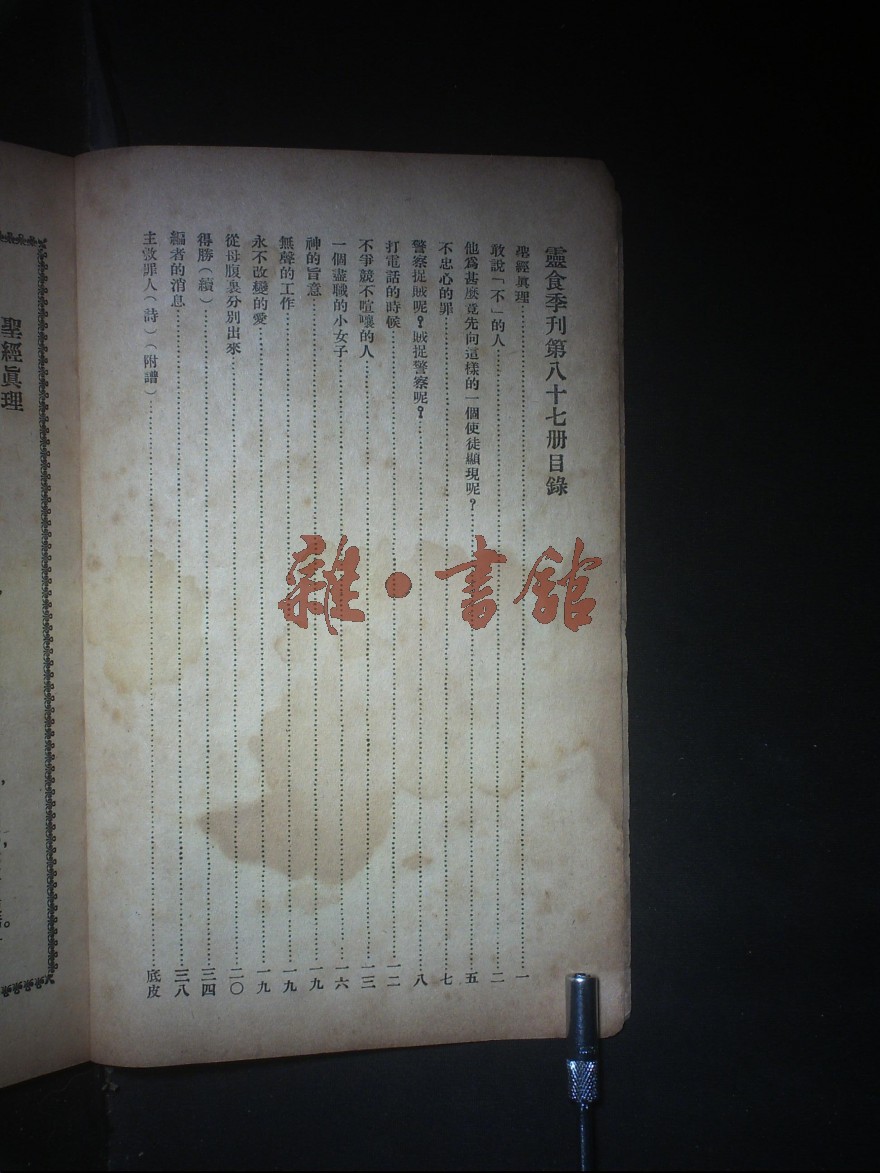 靈食季刊第八十七册目錄
聖經眞理一
敢說「不」的人二
他爲甚麼竟先向這樣的一個使徒顯現呢？五
不忠心的罪七
警察捉賊呢？賊捉警察呢？八
打電話的時候一二
不爭競不喧嚷的人一三
一個盡職的小女子一六
神的旨意一九
無聲的工作一九
永不改變的愛一九
從母腹裏分別出來二〇
得勝（續）三四
編者的消息三八
主救罪人（詩）（附譜）底皮
聖經眞理
雜·書館